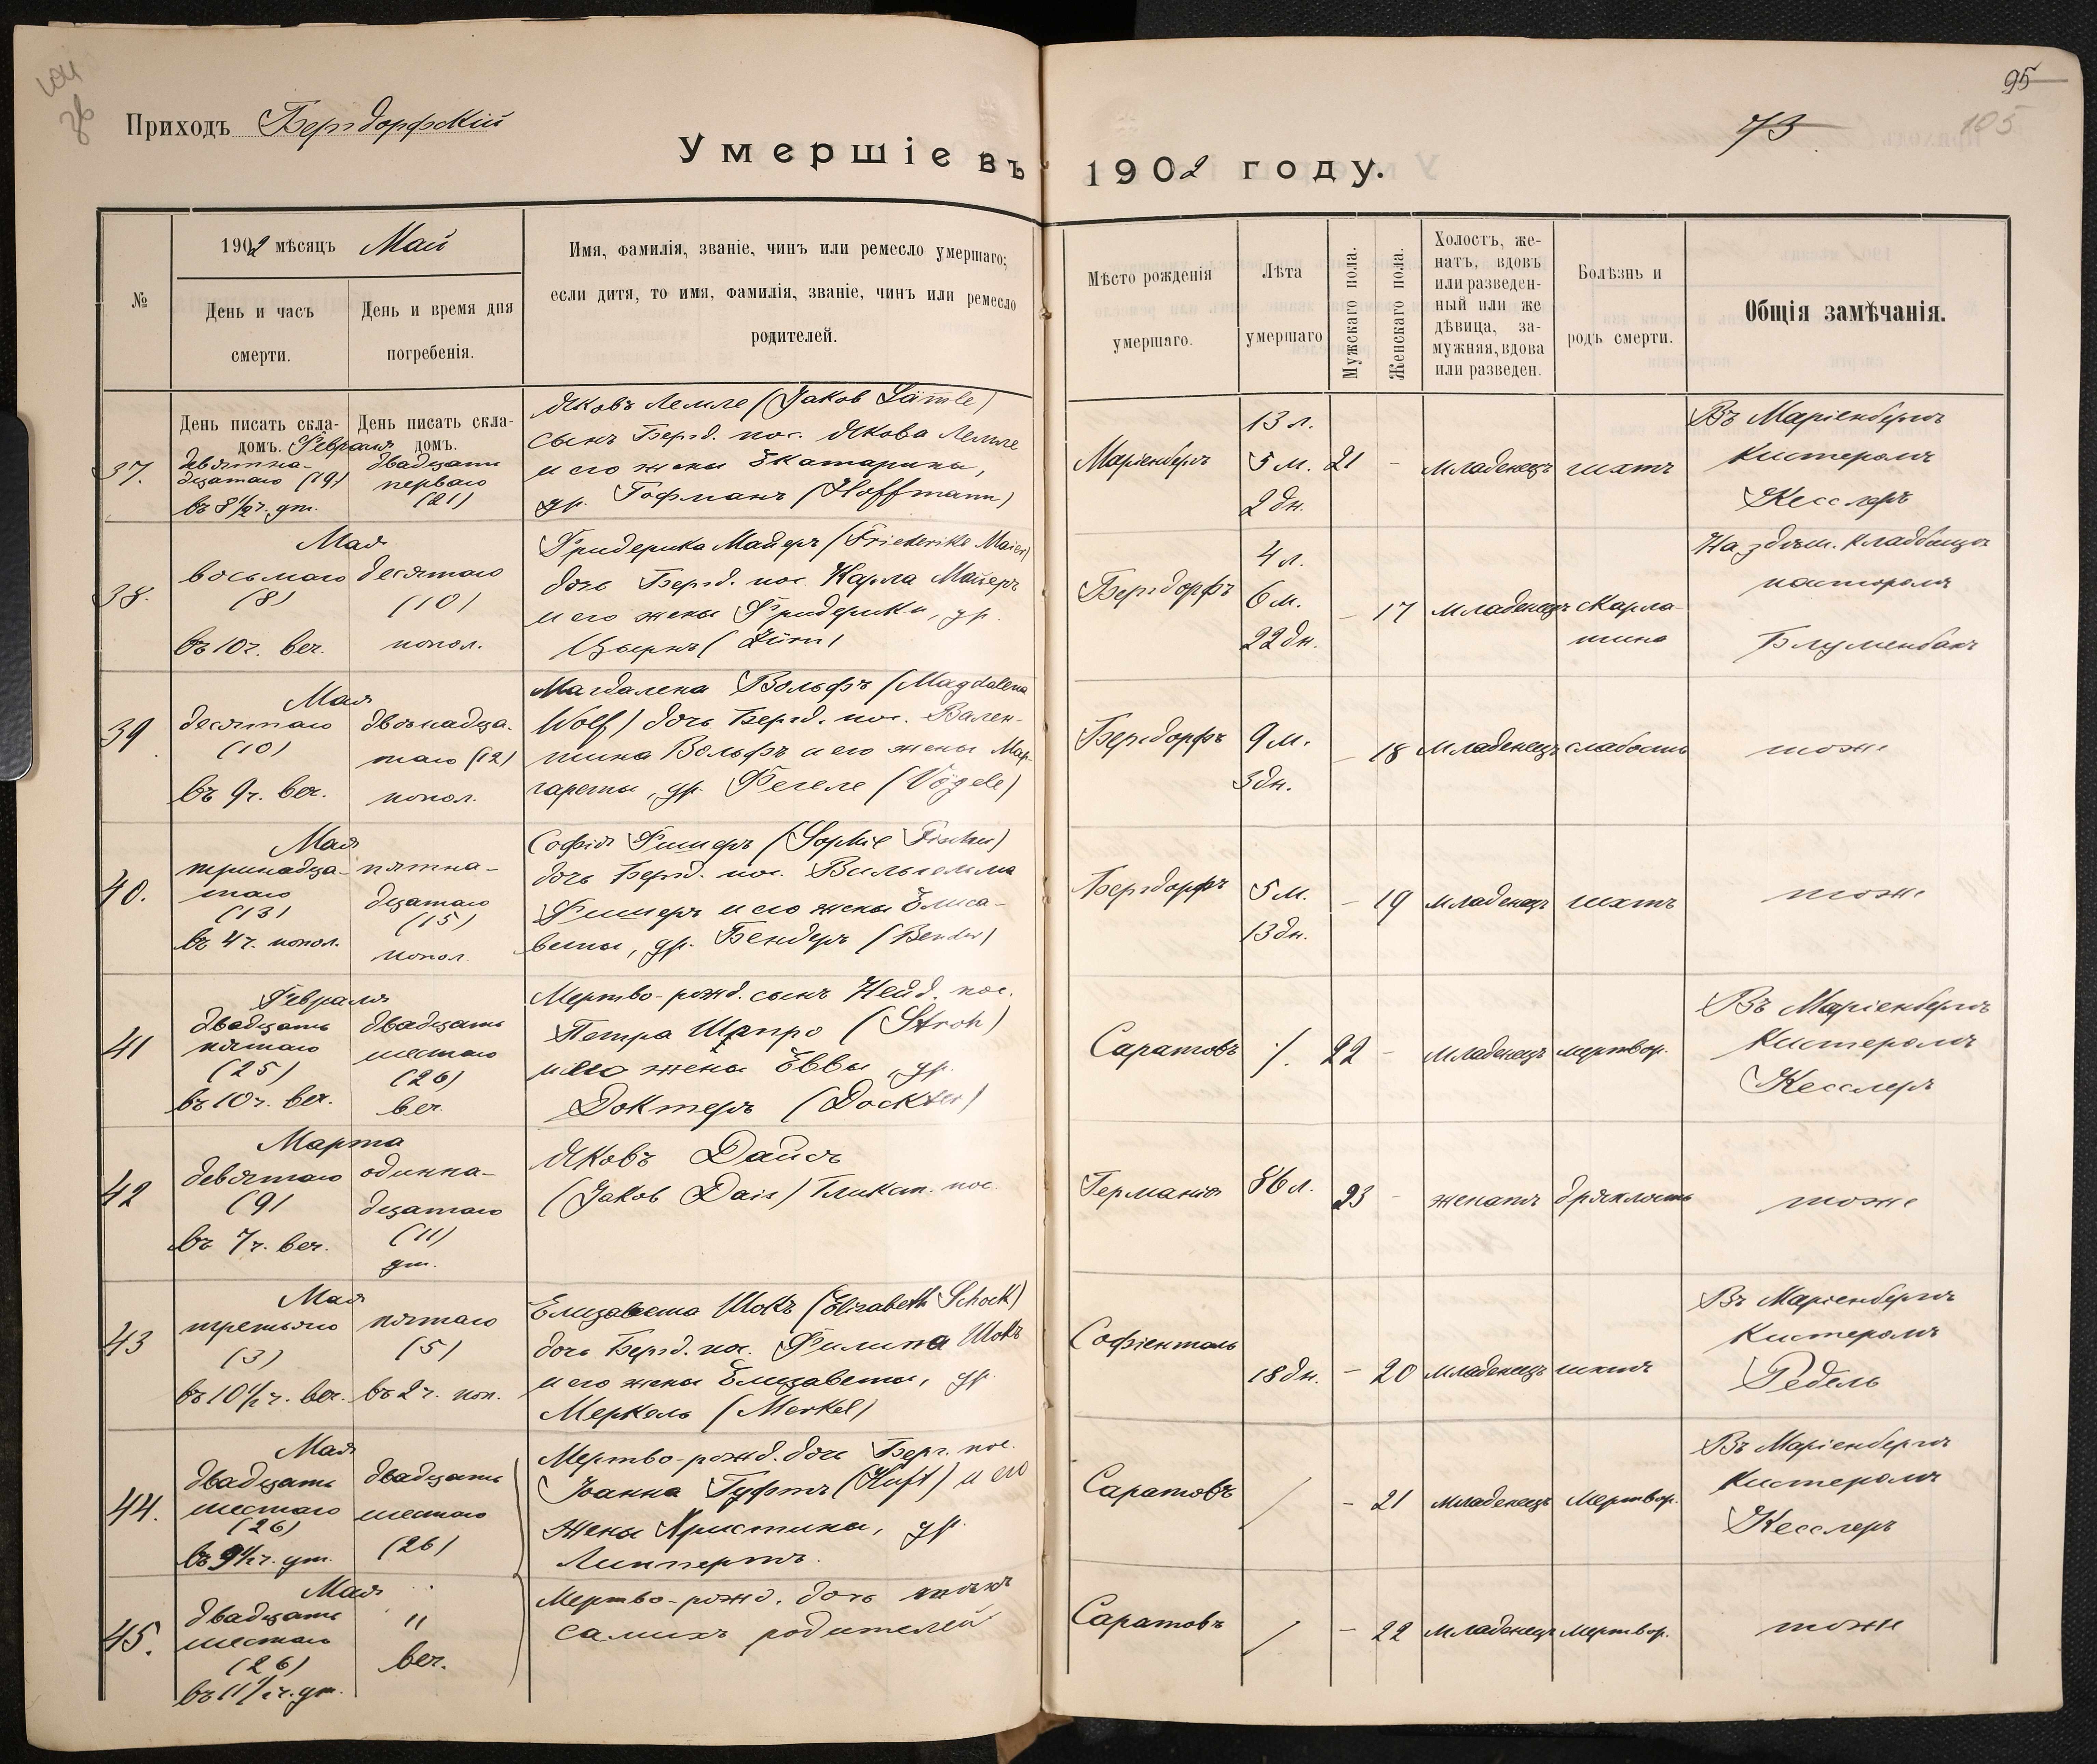 95
73
105
Приходъ Бергдорфскій
Умершіе въ 1902 году.
№
1902 мѣсяцъ Май
День и часъ смерти.
День и время дня погребенія.
Имя, фамилія, званіе, чинъ или ремесло умершаго;
если дитя, то имя, фамилія, званіе, чинъ или ремесло
родителей.
Мѣсто рожденія
умершаго.
Лѣта
умершаго
Мужескаго пола.
Женскаго пола.
Холостъ, же-
натъ, вдовъ
или разведен-
ный или же
дѣвица, за-
мужняя, вдова
или разведен.
Болѣзнь и
родъ смерти.
Общія замѣчанія.
День писать скла-
домъ.
День писать скла-
домъ.
37.
Февраля
девятна-
дцатаго (19)
въ 8 1/2 ч. ут.
двадцать
перваго
(21)
Яковъ Лемле (Jakob Lämle)
сынъ Бергд. пос. Якова Лемле
и его жены Екатарины,
ур. Гофманъ (Hoffmann)
Маріенбергъ
13 л.
5 м.
2 дн.
21 -
младенецъ
Въ Маріенбергѣ
кистеромъ
Кесслеръ
38.
Мая
восьмаго
(8)
въ 10 ч. веч.
десятаго
(10)
попол.
Фридерика Майеръ (Friederike Maier)
дочь Бергд. пос. Карла Майеръ
и его жены Фридерики, ур.
Цьернъ (Zürn)
Бергдорфъ
4 л.
6 м.
22 дн.
- 17
младенецъ
скарла-
тина
На здѣш. кладбищѣ
пасторомъ
Блуменбахъ
39
Мая
десятаго
(10)
въ 9 ч. веч.
двѣнадца-
таго (12)
попол.
Магдалена Вольфъ (Magdalena
Wolf) дочь Бергд. пос. Вален-
тина Вольфъ и его жены Мар-
гареты, ур. Фегеле (Vögele)
Бергдорфъ
9 м.
3 дн.
- 18
младенецъ
слабость
тоже
40.
Мая
тринадца-
таго
(13)
въ 4 ч. попол.
пятна-
дцатаго
(15)
попол.
Софія Фишеръ (Sophie Fischer)
дочь Бергд. пос. Вильгельма
Фишеръ и его жены Елиса-
веты, ур. Бендеръ (Bender)
Бергдорфъ
5 м.
13 дн.
- 19
младенецъ
тоже
41
Февраля
двадцать
пятаго
(25)
въ 10 ч. веч.
двадцать
шестаго
(26)
веч.
Мертво-рожд. сынъ Нейд. пос.
Петра Штро (Stroh)
и его жены Еввы, ур.
Доктеръ (Dockter)
Саратовъ
/.
22 -
младенецъ
мертвор.
Въ Маріенбергѣ
кистеромъ
Кесслеръ
42
Марта
девятаго
(9)
въ 7 ч. веч.
одинна-
дцатаго
(11)
ут.
Яковъ Дайсъ
(Jakob Dais) Гликст. пос.
Германія
86 л.
23 -
женатъ
дряхлость
тоже
43
Мая
третьяго
(3)
въ 10 1/2 ч. веч.
пятаго
(5)
въ 2 ч. поп.
Елизавета Шокъ (Elisabeth Schock)
дочь Бергд. пос. Филипа Шокъ
и его жены Елизаветы, ур.
Меркель (Merkel)
Софіенталь
18 дн.
- 20
младенецъ
Въ Маріенбергѣ
кистеромъ
Редель
44.
Мая
двадцать
шестаго
(26)
въ 9 1/2 ч. ут.
двадцать
шестаго
(26)
Мертво-рожд. дочь Берг. пос.
Іоанна Гуфтъ (Huft) и его
жены Христины, ур.
Липпертъ.
Саратовъ
/
- 21
младенецъ
мертвор.
Въ Маріенбергѣ
кистеромъ
Кесслеръ
45.
Мая
двадцать
шестаго
(26)
въ 11 1/2 ч. ут.
"
веч.
Мертво-рожд. дочь тѣхъ
самихъ родителей
Саратовъ
/
- 22
младенецъ
мертвор.
тоже